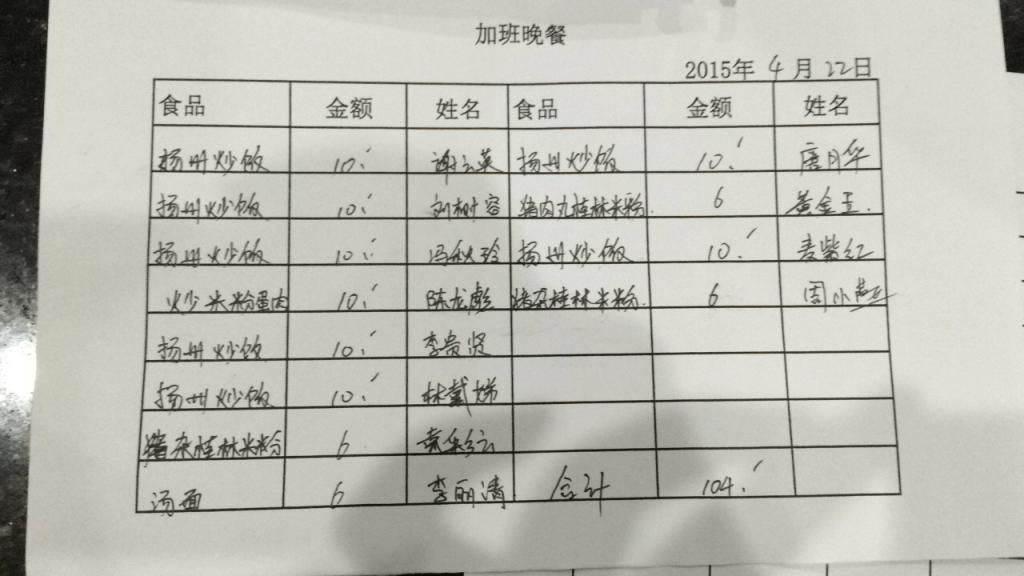 加班晚餐
2015年 4 月 22日
食品 金额 姓名 食品 金额 姓名
扬州炒饭 10 谢云英 扬州炒饭 10 唐月华
扬州炒饭 10 刘树容 猪肉丸桂林米粉 6 黄金玉
扬州炒饭 10 冯秋玲 扬州炒饭 10 麦紫红
炒米粉蛋肉 10 陈龙彪 猪杂桂林米粉 6 周小燕
扬州炒饭 10 李贵贤
扬州炒饭 10 林戴娣
猪杂桂林米粉 6
汤面 6 李丽清 合计 104